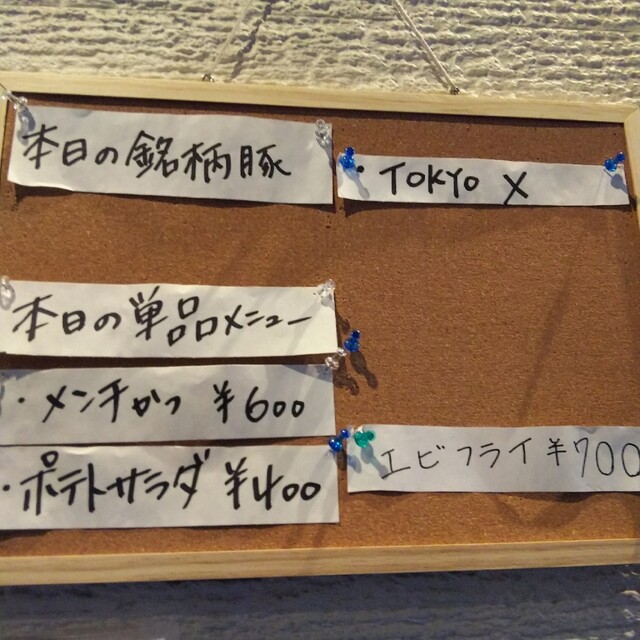 本日の銘柄豚
・TOKYO X
本日の単品メニュー
・メンチかつ ¥600
・ポテトサラダ ¥400
エビフライ ¥700